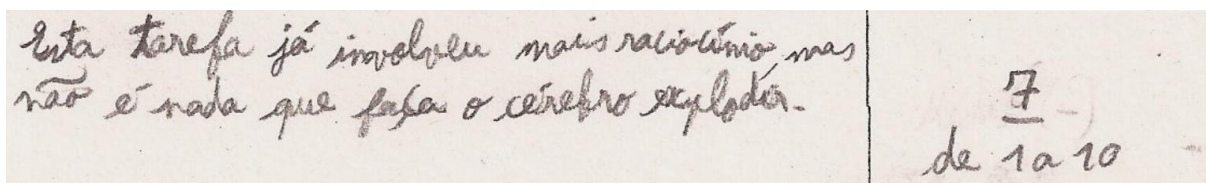 Esta tarefa já involveu mais raciocínio, mas
não é nada que faça o cérebro explodir.
7
de 1 a 10